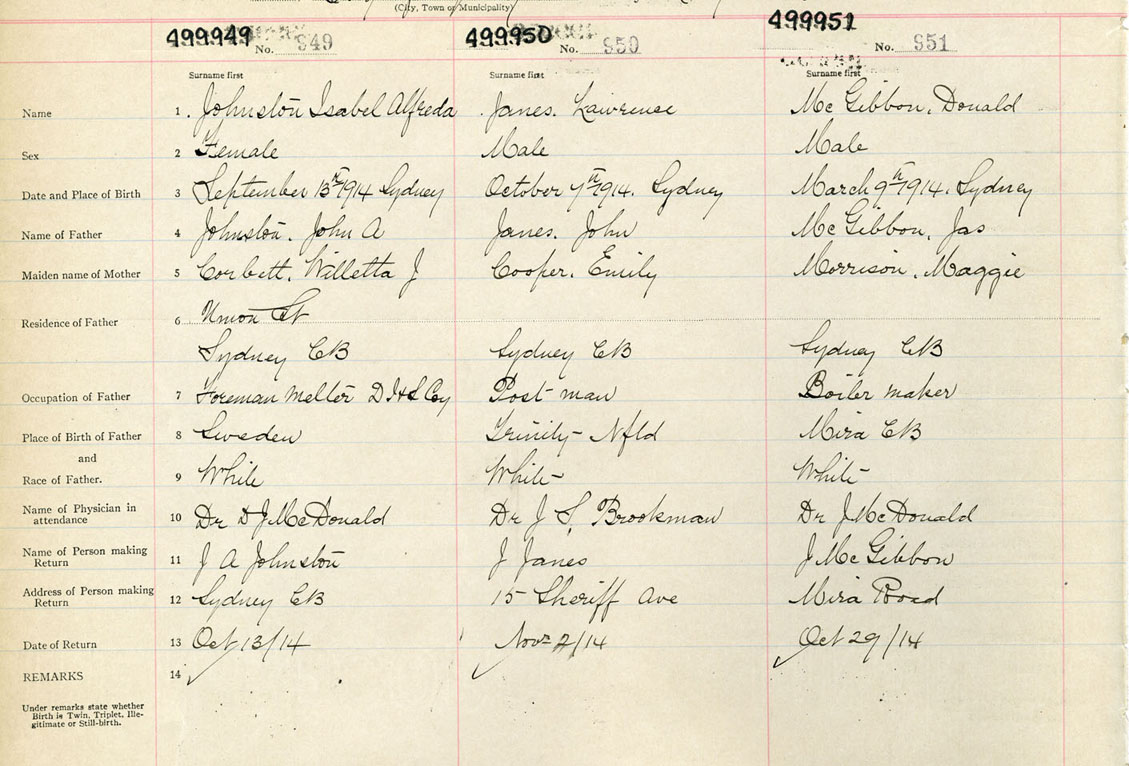 (City, Town or Municipality)
499949 No. 949 499950 No. 950 499951 No. 951
Surname first Surname first Surname first
Name 1. Johnston Isabel Alfreda Janes. Lawrence McGibbon. Donald
Sex 2 Female Male Male
Date and Place of Birth 3 September 13th 1914 Sydney October 7th 1914. Sydney March 9th 1914. Sydney
Name of Father 4 Johnston. John A Janes. John McGibbon, Jas
Maiden name of Mother 5 Corbett. Willetta J Cooper. Emily Morrison. Maggie
Residence of Father 6 Union St
Sydney CB Sydney CB Sydney CB
Occupation of Father 7 Foreman Melter D I & S Coy Post man Boiler maker
Place of Birth of Father 8 Sweden Trinity Nfld Mira CB
and
Race of Father. 9 White White White
Name of Physician in
attendance 10 Dr D J McDonald Dr J S. Brookman Dr J McDonald
Name of Person making
Return 11 J A Johnston J Janes J McGibbon
Address of Person making
Return 12 Sydney CB 15 Sheriff Ave Mira Road
Date of Return 13 Oct 13/14 Novr 2/14 Oct 29/14
REMARKS 14
Under remarks state whether
Birth is Twin, Triplet, Ille-
gitimate or Still-birth.